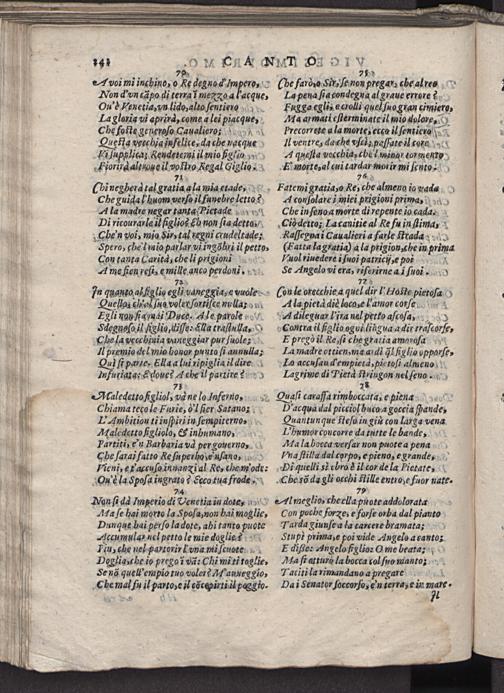 242 CANTO
70
A voi mi inchino, o Re degno d'Impero,
Non d'un cãpo di terra ĩ mezzo a l'acque,
Ou'è Venetia, un lido, alto sentiero
La gloria vi aprirà, come a lei piacque,
Che foste generoso Caualiero;
Questa vecchia infelice, da che nacque
Vi supplica; Rendetemi il mio figlio
Fiorirà altroue il vostro Regal Giglio.
71
Chi negherà tal gratia a la mia etade,
Che guida l'huom verso il funebre letto?
A la madre negar tanta Pietade
Di ricourarle il figlio? Eh non sia detto,
Che'n voi, mio Sir, tal regni crudeltade;
Spero, che'l mio parlar vi ingõbri il petto,
Con tanta Carità, che li prigioni
A me sien resi, e mille anco perdoni.
72
In quanto al figlio egli vaneggia, e vuole
Quello, ch'al suo voler sortisce nulla;
Egli non sia mai Duce. A le parole
Sdegnoso il figlio, disse: Ella trastulla,
Che la vecchiaia vaneggiar pur suole;
Il premio del mio honor punto si annulla;
Qui si parte. Ella a lui ripiglia il dire
Infuriata; E doue? A che il partire?
73
Maledetto figliol, và ne lo Inferno,
Chiama teco le Furie, ò'l fier Satano;
L'Ambition ti inspiri in sempiterno
Maledetto figliolo, & inhumano,
Partiti, e'n Barbaria và per gouerno,
Che sarai fatto Re superbo, e insano.
Vieni, e t'accuso innanzi al Re, che m'ode:
Qu'è la Sposa ingrato? Ecco tua frode.
74
Non si dà Imperio di Venetia in dote,
Ma se hai morto la Sposa, non hai moglie,
Dunque hai perso la dote, ahi tanto puote
Accumular nel petto le mie doglie?
Piu, che nel partorir l'una mi scuote
Doglia, che io prego ĩ vã: Chi mi ti toglie,
Se nõ quell'empio tuo voler? M'auueggio,
Che mal fù il parto, e il cõcepirti il peggio.
75
Che farò, o Sir, se non pregar, che al reo
La pena sia condegna al graue errore?
Fugga egli, e crolli quel suo gran cimiero,
Ma armati esterminate il mio dolore,
Precorrete a la morte, ecco il sentiero
Il ventre, da che uscì, passate il core
A questa vecchia, che'l minor tormento
E' morte, al cui tardar morir mi sento.
76
Fatemi gratia, o Re, che almeno io vada
A consolare i miei prigioni prima,
Che in seno a morte di repente io cada;
Ciò detto; La canitie al Re fu in stima,
Rassegna i Caualieri a farle strada
(Fatta la gratia) a la prigion, che in prima
Vuol riuedere i suoi patricij, e poi
Se Angelo vi era, riferirne a i suoi.
77
Con le orecchie a quel dir l'Hoste pietosa
A la pietà diè loco, e l'amor corse
A dileguar l'ira nel petto ascosa,
Contra il figlio ogni lingua a dir trascorse,
E pregò il Re, sì che gratia amorosa
La madre ottien, ma ardì q̃l figlio opporse,
Lo accusan d'empietà, pietosi almeno
Lagrime di Pietà stringon nel seno.
78
Quasi caraffa rimboccata, e piena
D'acqua dal picciol buco a goccia spande,
Quantunque stesa in giù con larga vena
L'humor concorre da tutte le bande,
Ma la bocca versar non puote a pena
Vna stilla dal corpo, e pieno, e grande,
Di quelli sì ebro è il cor de la Pietate,
Che sõ da gli occhi stille entro, e fuor nate.
79
Al meglio, che ella puote addolorata
Con poche forze, e forse orba dal pianto
Tarda giunse a la carcere bramata;
Stupì prima, e poi vide Angelo a canto;
E disse: Angelo figlio: O me beata;
Ma si atturò la bocca col suo manto;
Taciti la rimandano a pregare
Da i Senator soccorso, e'n terra, e in mare.
Il